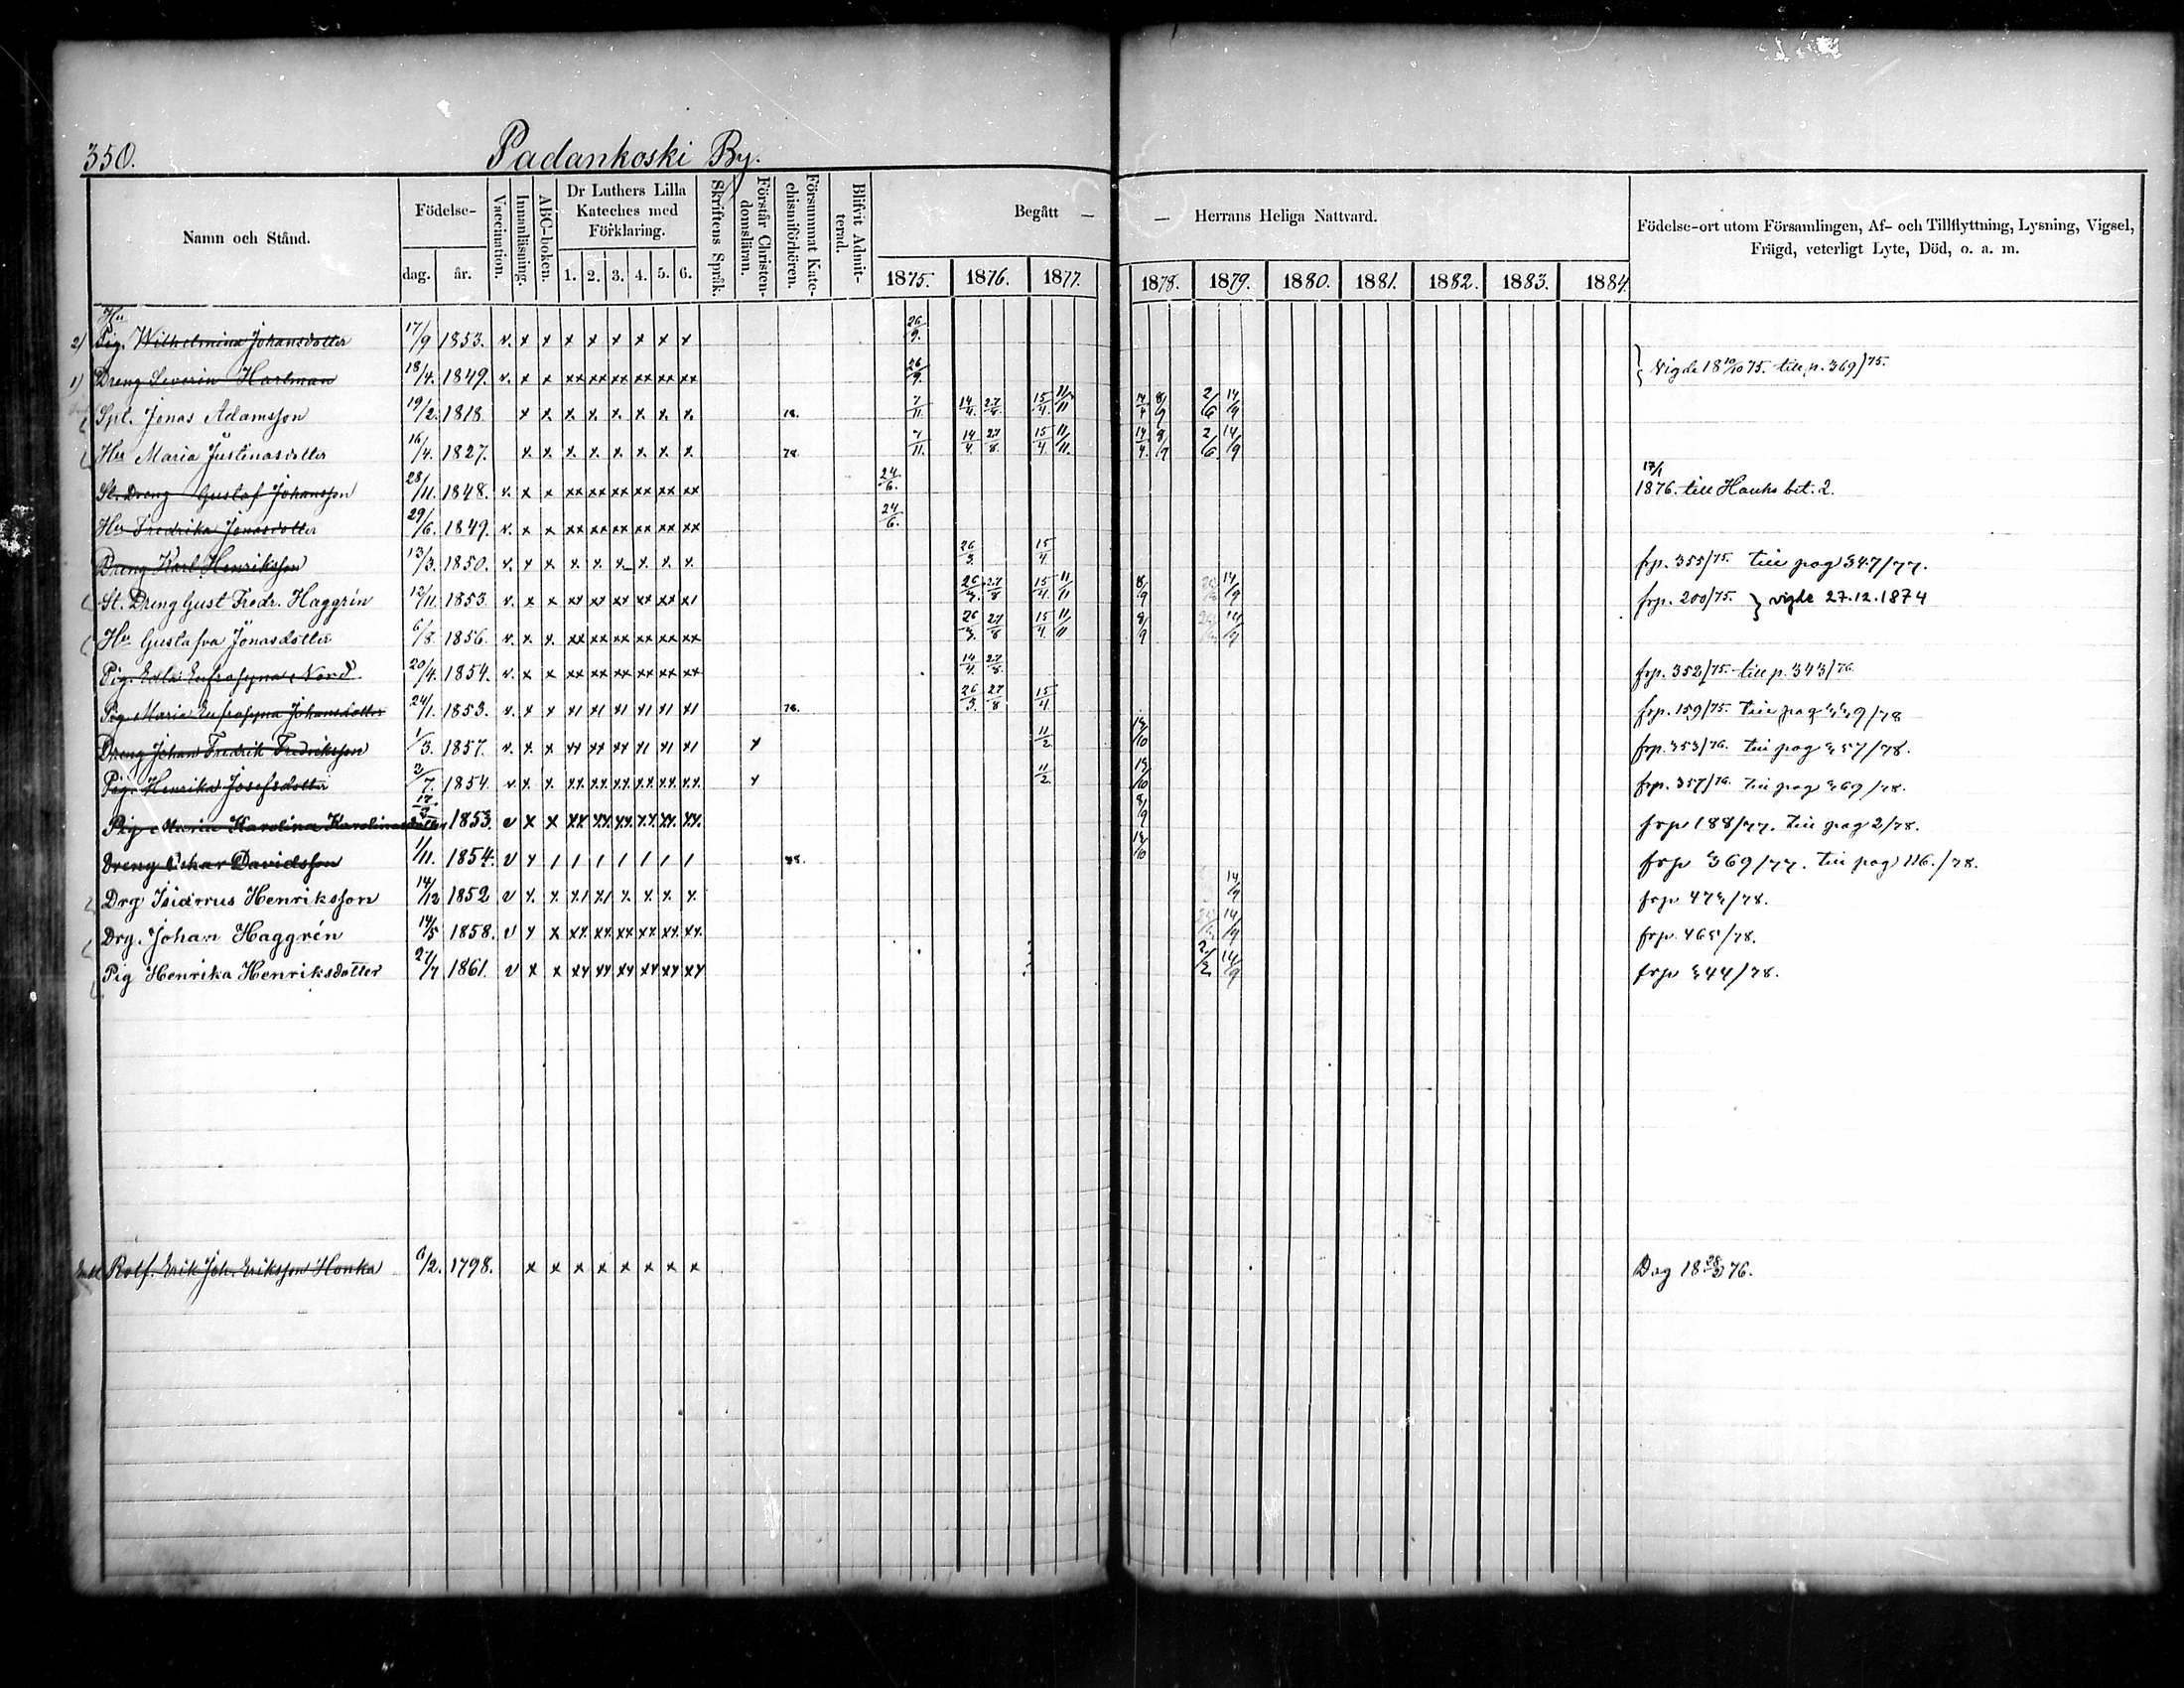 350. Padankoski By.
Namn och Stånd. Födelse- dag. år. Vaccination. Innanläsning. ABC-boken. Dr Luthers Lilla Kateches med Förklaring. 1. 2. 3. 4. 5. 6. Skriftens Språk. Förstår Christendomsläran. Försummat Katechismiförhören. Blifvit Admitterad. Begått — — Herrans Heliga Nattvard. 1875. 1876. 1877. 1878. 1879. 1880. 1881. 1882. 1883. 1884. Födelse-ort utom Församlingen, Af- och Tillflyttning, Lysning, Vigsel, Frägd, veterligt Lyte, Död, o. a. m.
Hu
2) Pig. Wilhelmina Johansdotter 17/9 1853. v. x x x x x x x x 26/9.
1) Dreng Severin Harlman 18/4. 1849. v. x x xx xx xx xx xx xx 26/9. } Vigde 18 10/10 75. till p. 369/75.
Spl. Jonas Adamsson 19/2. 1818. x x x x x x x x 78. 7/11. 14/4. 27/8. 15/4. 11/11 14/4 8/9 2/6 14/9
Hu Maria Justinasdotter 16/4. 1827. x x x x x x x x 78. 7/11. 14/4. 27/8. 15/4. 11/11. 14/4. 8/9 2/6. 14/9
St. Dreng Gustaf Johansson 28/11. 1848. v. x x xx xx xx xx xx xx 24/6. 17/1 1876. till Hauho bet. 2.
Hu Fredrika Jonasdotter 29/6. 1849. v. x x xx xx xx xx xx xx 24/6.
Dreng Karl Henriksson 13/3. 1850. v. x x x x x x x x 26/3. 15/4 frp. 355/75. till pag 347/77.
St. Dreng Gust Fredr. Haggrén 12/11. 1853. v. x x xx xx xx xx xx x1 26/3. 27/8 15/4. 11/11 8/9 14/9 frp. 200/75. } vigde 27.12.1874
Hu Gustafva Jonasdotter 6/8. 1856. v. x x xx xx xx xx xx xx 26/3. 27/8 15/4. 11/11 8/9 14/9
Pig. Edla Eufrosyna Nord 20/4. 1854. v. x x xx xx xx xx xx xx 14/4. 27/8. frp. 352/75. till p. 343/76
Pig. Maria Eufrosyna Johansdotter 24/1. 1853. v. x x x1 x1 x1 x1 x1 x1 78. 26/3. 27/8 15/4 frp. 159/75. till pag 339/78
Dreng Johan Fredrik Fredriksson 1/3. 1857. v. x x xx xx xx x1 x1 x1 x 11/2 13/10 frp. 353/76. till pag 357/78.
Pig. Henrika Josefsdotter 2/7. 1854. v x x xx xx xx xx xx xx x 11/2 13/10 frp. 357/76. till pag 369/78.
Pig Maria Karolina Karolinasdotter 1853. v x x xx xx xx xx xx xx 8/9 frp 188/77. till pag 2/78.
Dreng Oskar Davidsson 1/11. 1854. v x 1 1 1 1 1 1 1 78. 13/10 frp 369/77. till pag 116./78.
Drg Isidorus Henriksson 14/12 1852 v x x x1 x1 x x x x 14/9 frp 473/78.
Drg. Johan Haggrén 14/5 1858. v x x xx xx xx xx xx xx 14/9 frp. 465/78.
Pig Henrika Henriksdotter 27/7 1861. v x x xx xx xx xx xx xx 2/2 14/9 frp 344/78.
Rotf. Erik Joh. Eriksson Honka 6/2. 1798. x x x x x x x x Dog 18 28/3 76.